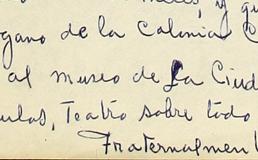 y qu
gano de la Colonia C
al museo de La Ciud
ulos, Teatro sobre todo
Fraternalmen